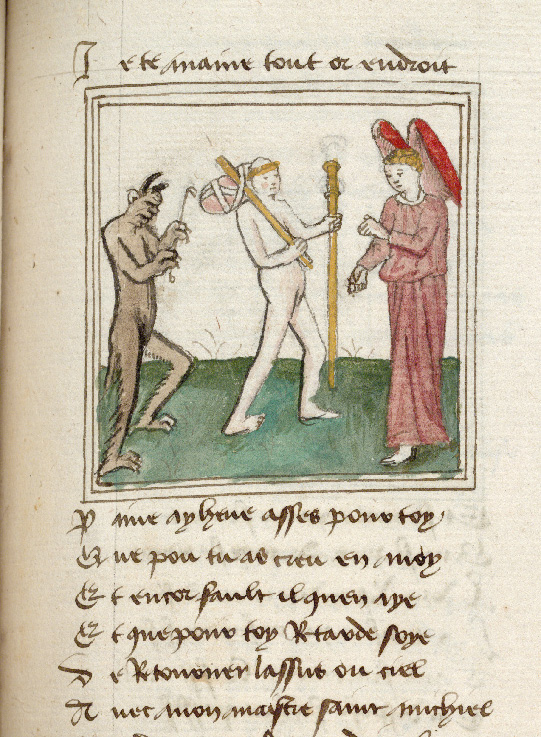 Je te maine tout or endroit
Paine ay heue asses pour toy
Que pou tu as creu en moy
Et encor fault il quen aye
Et que pour toy Retarde soye
De Retourner lassus ou ciel
Auec mon maistre saint michiel